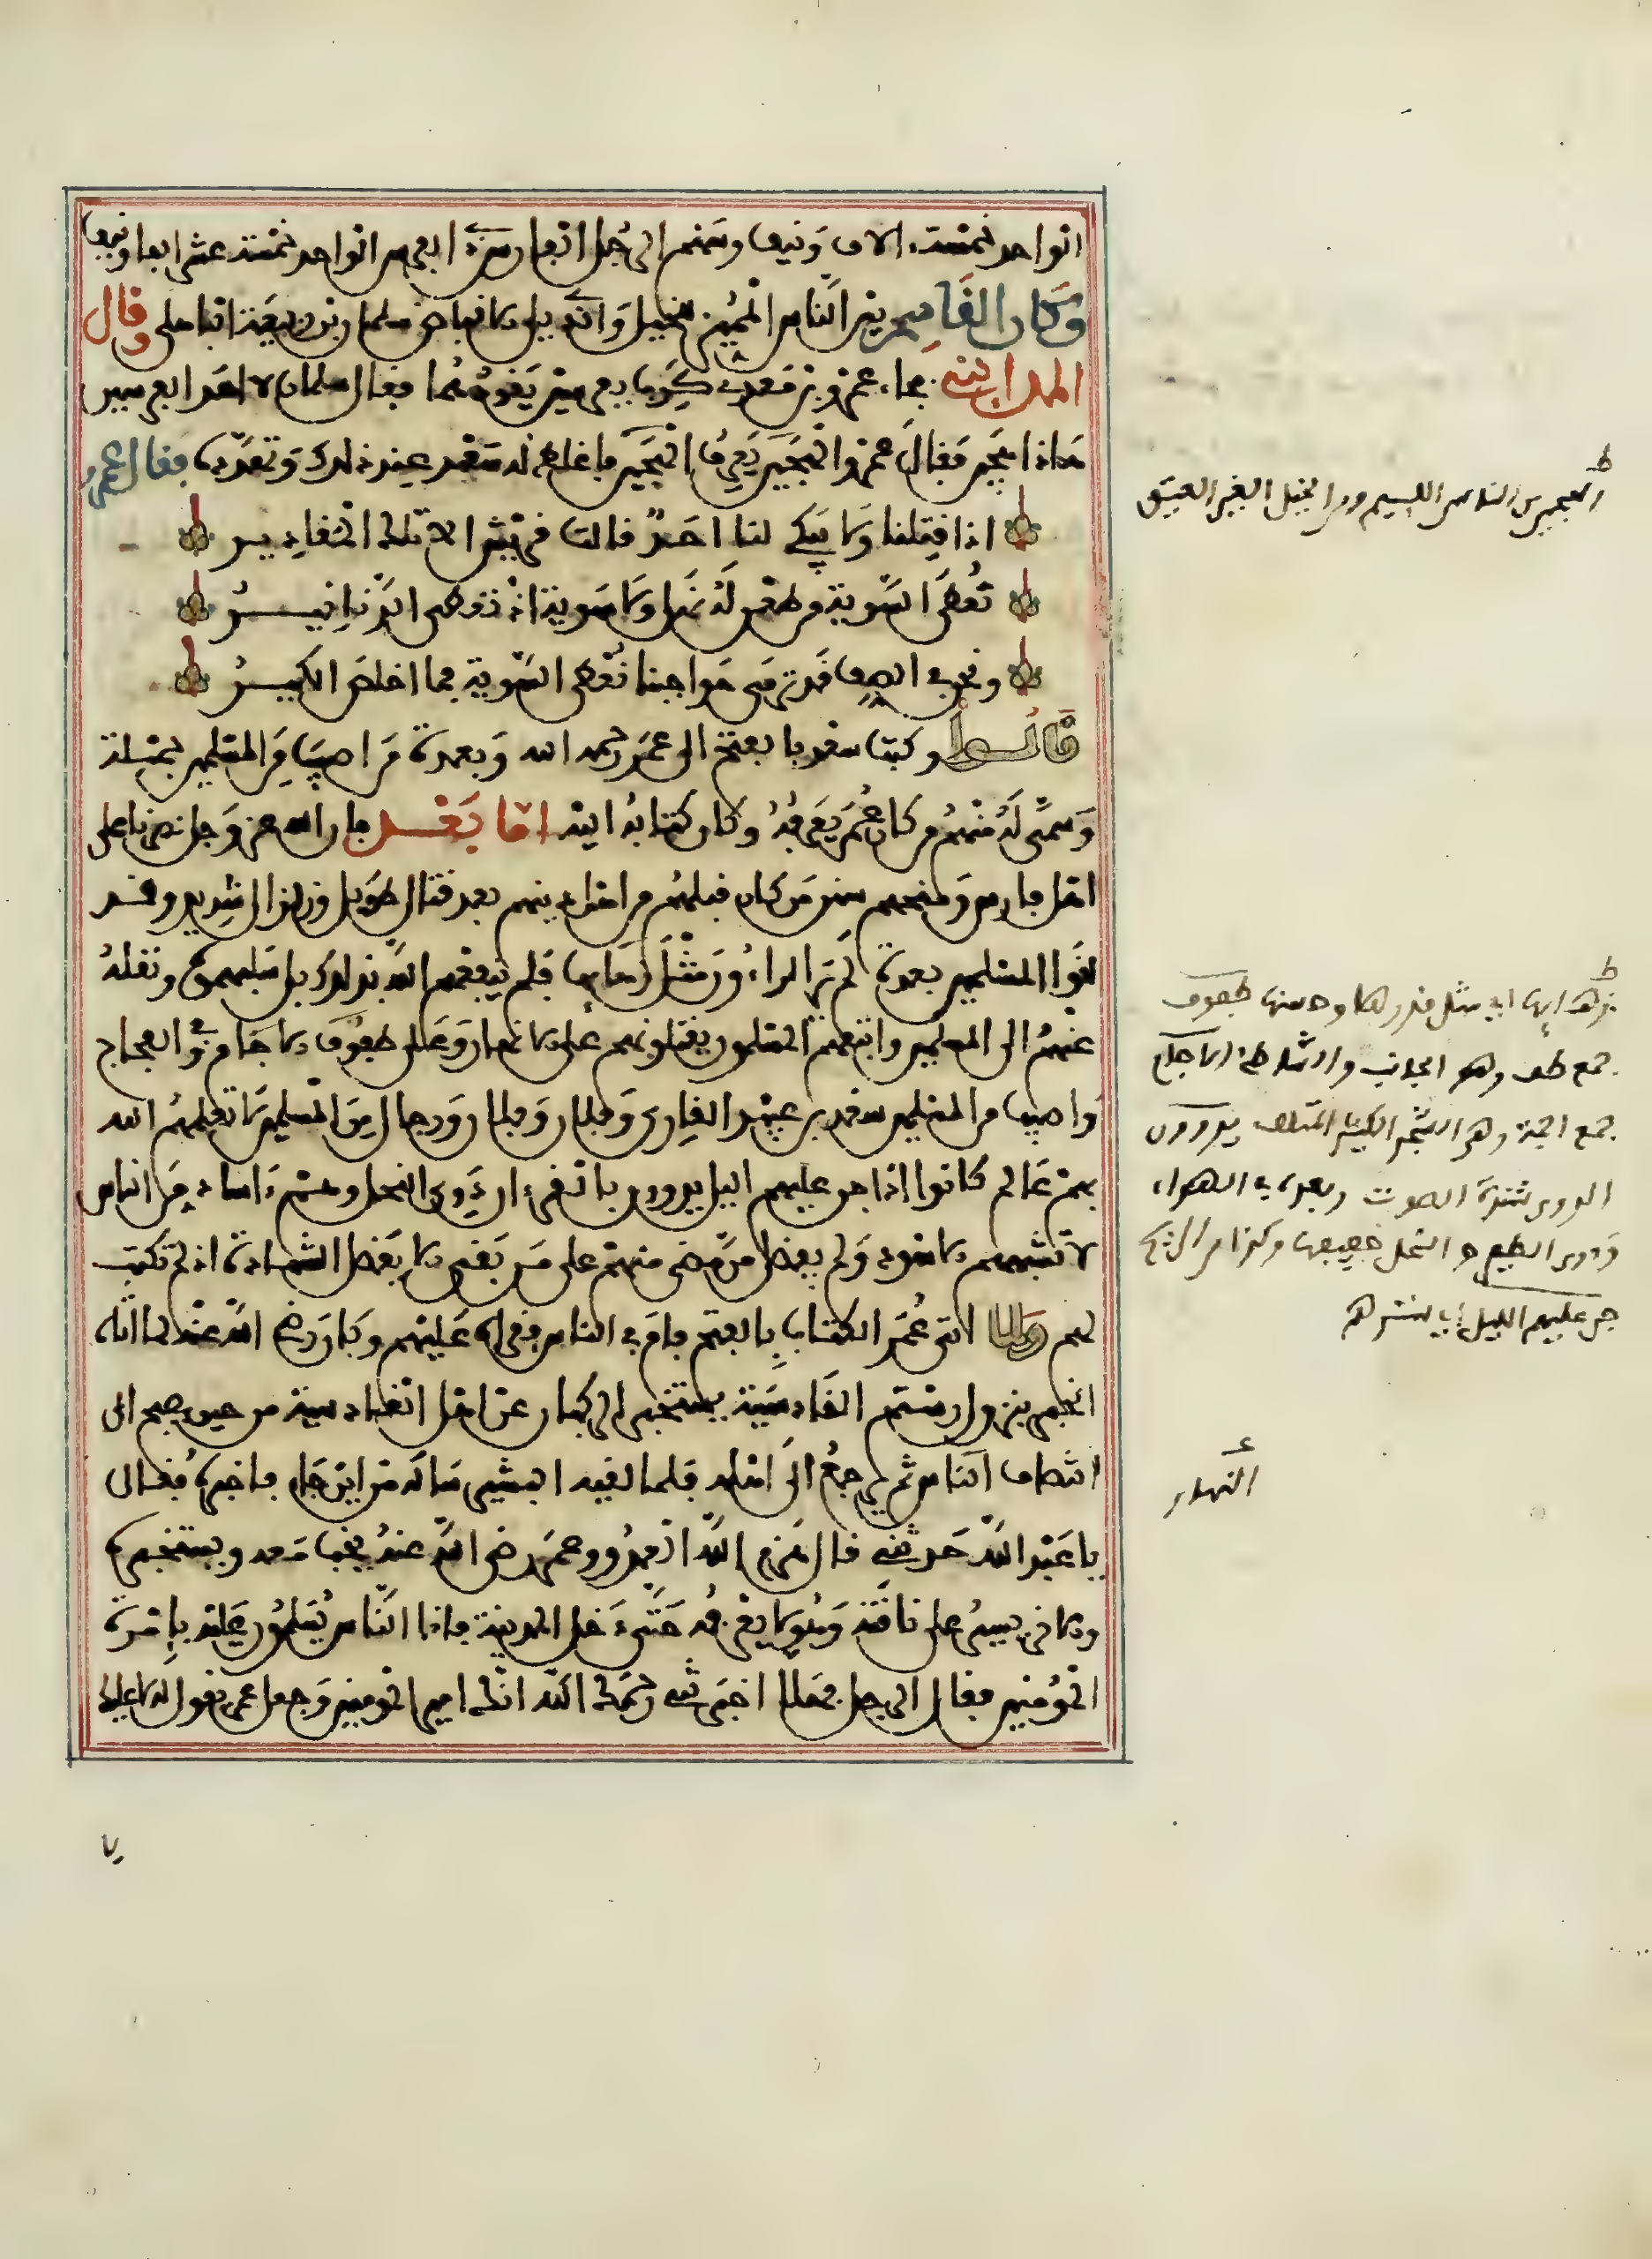 الواحد خمسة ءالاف ونيف وسهم الرجل الفارس الواحد خمسة عشر الفا ونيفا
وكان القاسم بين الناس المميز للخيل والذي يلي الاقباض سلمان بن ربيعة الباهلي وقال
المدايني فجاء عمرو بن معدي كرب بفرسين يقودهما فقال سلمان لاحد الفرسين
هذا هجين فقال عمرو الهجين يعرف الهجين فاغلظ له سعد عند ذلك وتهدده فقال عمرو
اذا قتلنا ولا يبكي لنا احد قالت قريش الا تلك المقادير
نعطى السوية من طعن له نفذ ولا سوية اذ نعطى الدنانير
ونحن في الصف قد تدمى حواجبنا نعطى السوية مما اخلص الكير
قالوا وكتب سعد بالفتح الى عمر رحمه الله وبعدة من اصيب من المسلمين جملة
وسمى له منهم من كان عمر يعرفه وكان كتابه اليه اما بعد فان الله عز وجل نصرنا على
اهل فارس ومنحهم سنن من كان قبلهم من اهل دينهم بعد قتال طويل وزلزال شديد وقد
لقوا المسلمين بعدة لم ير الراءون مثل زهايها فلم ينفعهم الله بذلك بل سلبهموه ونقله
عنهم الى المسلمين واتبعهم المسلمون يقتلونهم على الانهار وعلى طفوف الاجام وفي الفجاج
واصيب من المسلمين سعد بن عبيد القاري وفلان وفلان ورجال من المسلمين لا نعلمهم الله
بهم عالم كانوا اذا جن عليهم اليل يدوون بالقرءان دوي النحل وهم ءاساد من الناس
لا تشبههم الاسود ولم يفضل من مضى منهم على من بقي الا بفضل الشهادة اذ لم تكتب
لهم ولما اتى عمر الكتاب بالفتح قام في الناس فقراه عليهم وكان رضي الله عنه لما اتاه
الخبر بنزول رستم القادسية يستخبر الركبان عن اهل القادسية من حين يصبح الى
انتصاف النهار ثم يرجع الى اهله فلما لقيه البشير ساله من اين جاء فاخبره فقال
يا عبد الله حدثني قال هزم الله العدو وعمر رضي الله عنه يخب معه ويستخبره
والاخر يسير على ناقته وهو لا يعرفه حتى دخل المدينة فاذا الناس يسلمون عليه بامرة
المؤمنين فقال الرجل فهلا اخبرتني رحمك الله انك امير المؤمنين وجعل عمر يقول له لا عليك
ط
الهجين من الناس اللئيم ومن الخيل الغير العتيق
ط
بزهايها اي مثل قدرها وحسنها طفوف
جمع طف وهو الجانب والشاطئ الاجام
جمع اجمة وهي الشجر الكثير الملتف يدوون
الدوي شدة الصوت وبعده في الهواء
ودوي الطير والنحل حفيفها وكذا من الريح
جن عليهم الليل اي سترهم
النهار